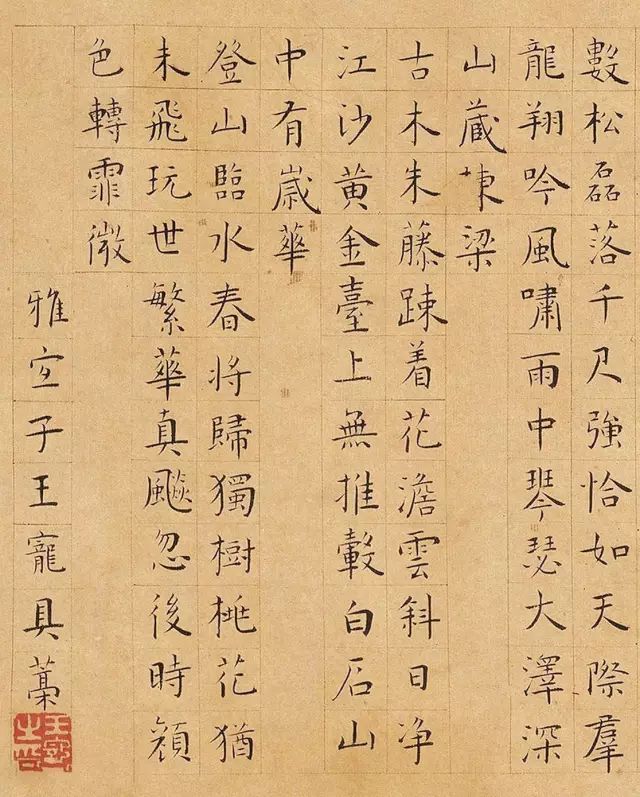 數松磊落千尺強恰如天際羣
龍翔吟風嘯雨中琴瑟大澤深
山蔵棟梁
古木朱藤踈着花澹雲斜日净
江沙黄金臺上無推轂白石山
中有嵗華
登山臨水春將歸獨樹桃花猶
未飛玩世繁華真飈忽後時顔
色轉霏微
雅宜子王寵具藁
王寵之印